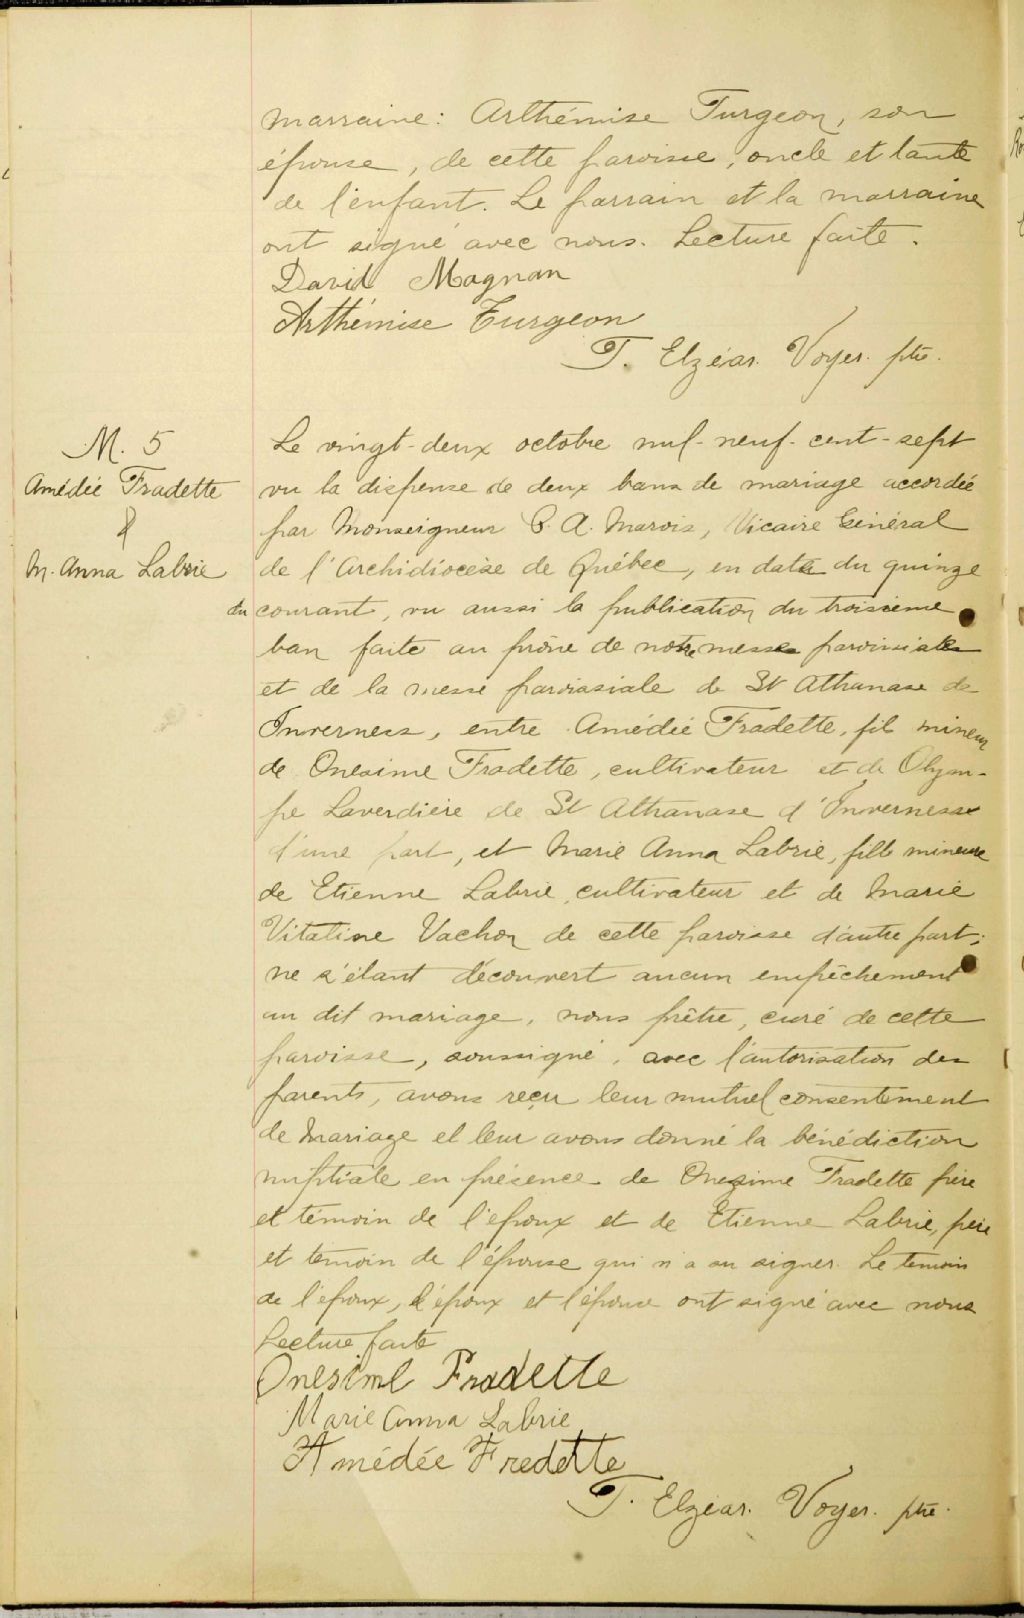 marraine: Arthémise Turgeon, son
épouse, de cette paroisse, oncle et tante
de l'enfant. Le parrain et la marraine
ont signé avec nous. Lecture faite.
David Magnan
Arthémise Turgeon
T. Elzéar. Voyer. ptre.
M. 5
Amédée Fradette
&
M. Anna Labrie
Le vingt-deux octobre mil-neuf-cent-sept
vu la dispense de deux bans de mariage accordée
par Monseigneur C. A. Marois, Vicaire Général
de l'Archidiocèse de Québec, en date du quinze
du courant, vu aussi la publication du troisième
ban faite au prône de notre messe paroissiale
et de la messe paroissiale de St Athanase de
Inverness, entre Amédée Fradette, fils mineur
de Onésime Fradette, cultivateur et de Olym-
pe Laverdière de St Athanase d'Inverness
d'une part, et Marie Anna Labrie, fille mineure
de Etienne Labrie, cultivateur et de Marie
Vitaline Vachon de cette paroisse d'autre part;
ne s'étant découvert aucun empêchement
au dit mariage, nous prêtre, curé de cette
paroisse, soussigné, avec l'autorisation des
parents, avons reçu leur mutuel consentement
de mariage et leur avons donné la bénédiction
nuptiale en présence de Onezime Fradette père
et témoin de l'époux et de Etienne Labrie, père
et temoin de l'épouse qui n'a su signer. Le temoin
de l'époux, l'époux et l'épouse ont signé avec nous
Lecture faite
Onesime Fradette
Marie Anna Labrie
Amédée Fredette
T. Elzéar. Voyer. ptre.